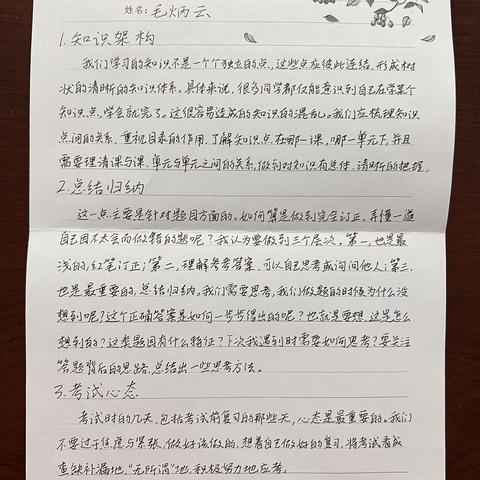 姓名：毛炳云
1.知识架构
我们学习的知识不是一个个独立的点，这些点应彼此连结，形成树
状的清晰的知识体系。具体来说，很多同学都仅能意识到自己在学某个
知识点，学会就完了。这很容易造成的知识的混乱。我们应梳理知识
点间的关系，重视目录的作用，了解知识点在哪一课，哪一单元下，并且
需要理清课与课、单元与单元之间的关系，做到对知识有总体、清晰的把握。
2.总结归纳
这一点主要是针对题目方面的。如何算是做到完全订正、弄懂一道
自己因不太会而做错的题呢？我认为要做到三个层次。第一，也是最
浅的，红笔订正；第二，理解参考答案，可以自己思考或询问他人；第三，
也是最重要的，总结归纳。我们需要思考，我们做题的时候为什么没
想到呢？这个正确答案是如何一步步得出的呢？也就是要想，这是怎么
想到的？这类题目有什么特征？下次我遇到时需要如何思考？要关注
答题背后的思路，总结出一些思考方法。
3.考试心态
考试时的几天，包括考试前复习的那些天，心态是最重要的。我们
不要过于焦虑与紧张，做好该做的，想着自己做好的复习，将考试看成
查缺补漏地，“无所谓”地，积极努力地应考。